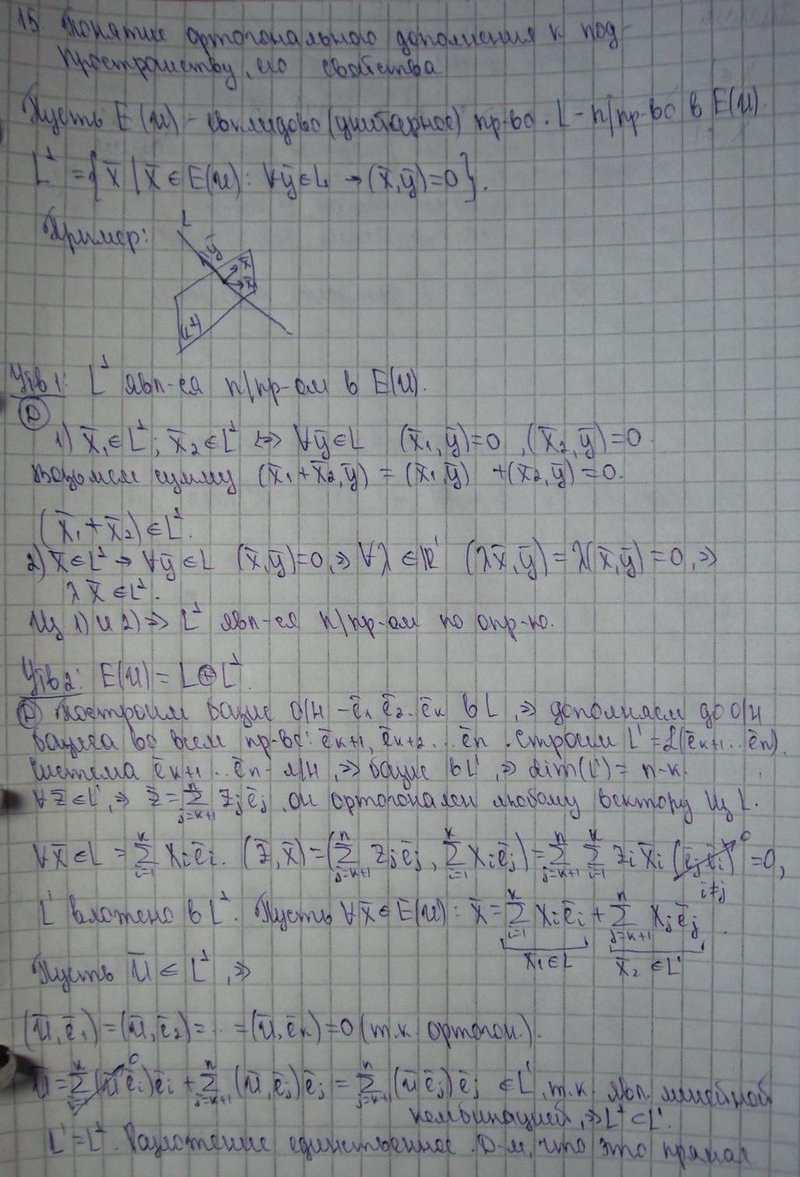 15. Понятие ортогонального дополнения к под-
пространству, его свойства
Пусть E(U) – евклидово (унитарное) пр-во. L – п/пр-во в E(U).
L^⊥ = {x̄ | x̄ ∈ E(U): ∀ȳ ∈ L → (x̄, ȳ) = 0}.
Пример:
L
ȳ x̄
x̄
L^⊥
Утв 1: L^⊥ явл-ся п/пр-ом в E(U).
Д
1) x̄₁ ∈ L^⊥; x̄₂ ∈ L^⊥ ⇔ ∀ȳ ∈ L (x̄₁, ȳ) = 0, (x̄₂, ȳ) = 0
Возьмем сумму (x̄₁ + x̄₂, ȳ) = (x̄₁, ȳ) + (x̄₂, ȳ) = 0.
(x̄₁ + x̄₂) ∈ L^⊥.
2) x̄ ∈ L^⊥ → ∀ȳ ∈ L (x̄, ȳ) = 0, ⇒ ∀λ ∈ ℝ¹ (λx̄, ȳ) = λ(x̄, ȳ) = 0, ⇒
λx̄ ∈ L^⊥.
Из 1) и 2) ⇒ L^⊥ явл-ся п/пр-ом по опр-ю.
Утв 2: E(U) = L ⊕ L^⊥.
Д Построим базис О/Н – ē₁ ē₂.. ēₖ в L, ⇒ дополняем до О/Н
базиса во всем пр-ве: ēₖ₊₁, ēₖ₊₂... ēₙ. Строим L' = L(ēₖ₊₁... ēₙ).
Система ēₖ₊₁... ēₙ – л/н, ⇒ базис в L', ⇒ dim(L') = n-k.
∀z̄ ∈ L', ⇒ z̄ = ∑ⱼ₌ₖ₊₁ⁿ zⱼēⱼ. он ортогонален любому вектору из L.
∀x̄ ∈ L = ∑ᵢ₌₁ᵏ xᵢēᵢ. (z̄, x̄) = (∑ⱼ₌ₖ₊₁ⁿ zⱼēⱼ, ∑ᵢ₌₁ᵏ xᵢēⱼ) = ∑ⱼ₌ₖ₊₁ⁿ ∑ᵢ₌₁ᵏ zᵢx̄ᵢ (ēⱼēᵢ)⁰ = 0,
i≠j
L' вложено в L^⊥. Пусть ∀x̄ ∈ E(U): x̄ = ∑ᵢ₌₁ᵏ xᵢēᵢ + ∑ⱼ₌ₖ₊₁ⁿ xⱼēⱼ.
x̄₁ ∈ L x̄₂ ∈ L'
Пусть ū ∈ L^⊥, ⇒
(ū, ē₁) = (ū, ē₂) = ... = (ū, ēₖ) = 0 (т.к. ортогон.).
ū = ∑ᵢ₌₁ᵏ (ū ēᵢ)⁰ēᵢ + ∑ⱼ₌ₖ₊₁ⁿ (ū, ēⱼ)ēⱼ = ∑ⱼ₌ₖ₊₁ⁿ (ū ēⱼ)ēⱼ ∈ L', т.к. явл. линейной
комбинацией, ⇒ L^⊥ ⊂ L'.
L' = L^⊥. Разложение единственное. Д-м, что это прямая